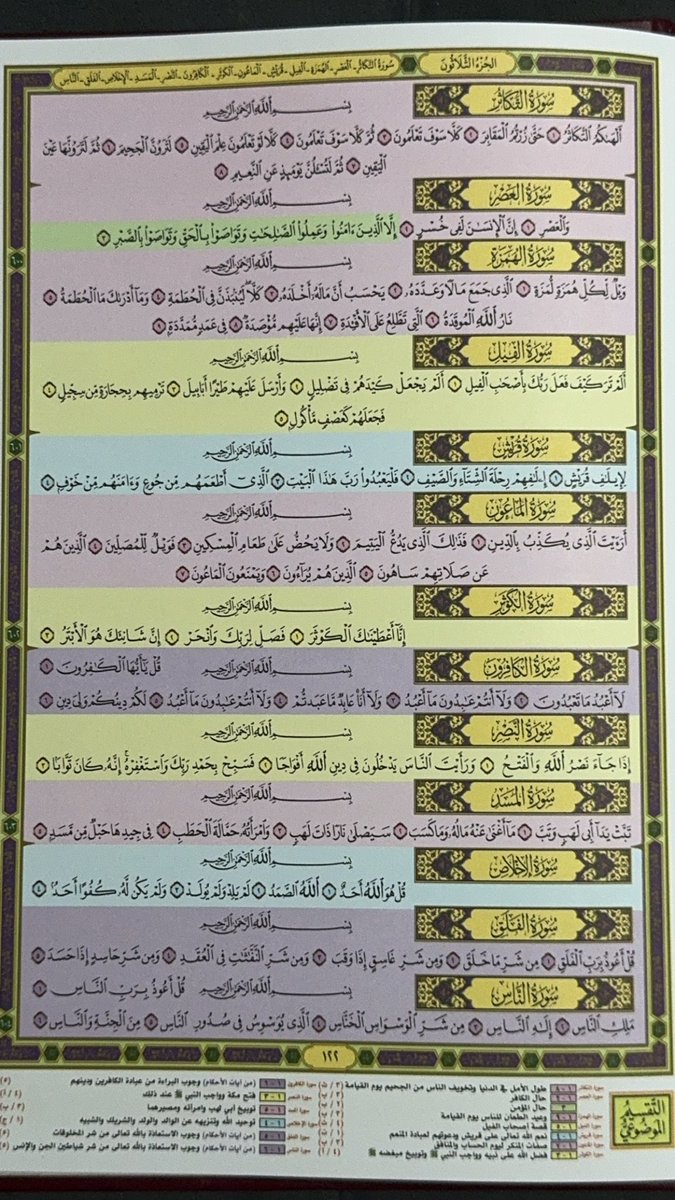 الجزء الثلاثون
سورة التكاثر - العصر - الهمزة - الفيل - قريش - الماعون - الكوثر - الكافرون - النصر - المسد - الإخلاص - الفلق - الناس
سُورَةُ التَّكَاثُرِ
بِسْمِ اللَّهِ الرَّحْمَٰنِ الرَّحِيمِ
أَلْهَىٰكُمُ التَّكَاثُرُ ١ حَتَّىٰ زُرْتُمُ الْمَقَابِرَ ٢ كَلَّا سَوْفَ تَعْلَمُونَ ٣ ثُمَّ كَلَّا سَوْفَ تَعْلَمُونَ ٤ كَلَّا لَوْ تَعْلَمُونَ عِلْمَ الْيَقِينِ ٥ لَتَرَوُنَّ الْجَحِيمَ ٦ ثُمَّ لَتَرَوُنَّهَا عَيْنَ
الْيَقِينِ ٧ ثُمَّ لَتُسْـَٔلُنَّ يَوْمَئِذٍ عَنِ النَّعِيمِ ٨
سُورَةُ الْعَصْرِ
بِسْمِ اللَّهِ الرَّحْمَٰنِ الرَّحِيمِ
وَالْعَصْرِ ١ إِنَّ الْإِنسَٰنَ لَفِى خُسْرٍ ٢ إِلَّا الَّذِينَ ءَامَنُوا وَعَمِلُوا الصَّٰلِحَٰتِ وَتَوَاصَوْا بِالْحَقِّ وَتَوَاصَوْا بِالصَّبْرِ ٣
سُورَةُ الْهُمَزَةِ
بِسْمِ اللَّهِ الرَّحْمَٰنِ الرَّحِيمِ
وَيْلٌ لِّكُلِّ هُمَزَةٍ لُّمَزَةٍ ١ الَّذِى جَمَعَ مَالًا وَعَدَّدَهُۥ ٢ يَحْسَبُ أَنَّ مَالَهُۥٓ أَخْلَدَهُۥ ٣ كَلَّا لَيُنۢبَذَنَّ فِى الْحُطَمَةِ ٤ وَمَآ أَدْرَىٰكَ مَا الْحُطَمَةُ ٥
نَارُ اللَّهِ الْمُوقَدَةُ ٦ الَّتِى تَطَّلِعُ عَلَى الْأَفْـِٔدَةِ ٧ إِنَّهَا عَلَيْهِم مُّؤْصَدَةٌ ٨ فِى عَمَدٍ مُّمَدَّدَةٍ ٩
سُورَةُ الْفِيلِ
بِسْمِ اللَّهِ الرَّحْمَٰنِ الرَّحِيمِ
أَلَمْ تَرَ كَيْفَ فَعَلَ رَبُّكَ بِأَصْحَٰبِ الْفِيلِ ١ أَلَمْ يَجْعَلْ كَيْدَهُمْ فِى تَضْلِيلٍ ٢ وَأَرْسَلَ عَلَيْهِمْ طَيْرًا أَبَابِيلَ ٣ تَرْمِيهِم بِحِجَارَةٍ مِّن سِجِّيلٍ ٤
فَجَعَلَهُمْ كَعَصْفٍ مَّأْكُولٍۭ ٥
سُورَةُ قُرَيْشٍ
بِسْمِ اللَّهِ الرَّحْمَٰنِ الرَّحِيمِ
لِإِيلَٰفِ قُرَيْشٍ ١ إِۦلَٰفِهِمْ رِحْلَةَ الشِّتَآءِ وَالصَّيْفِ ٢ فَلْيَعْبُدُوا رَبَّ هَٰذَا الْبَيْتِ ٣ الَّذِىٓ أَطْعَمَهُم مِّن جُوعٍ وَءَامَنَهُم مِّنْ خَوْفٍۭ ٤
سُورَةُ الْمَاعُونِ
بِسْمِ اللَّهِ الرَّحْمَٰنِ الرَّحِيمِ
أَرَءَيْتَ الَّذِى يُكَذِّبُ بِالدِّينِ ١ فَذَٰلِكَ الَّذِى يَدُعُّ الْيَتِيمَ ٢ وَلَا يَحُضُّ عَلَىٰ طَعَامِ الْمِسْكِينِ ٣ فَوَيْلٌ لِّلْمُصَلِّينَ ٤ الَّذِينَ هُمْ
عَن صَلَاتِهِمْ سَاهُونَ ٥ الَّذِينَ هُمْ يُرَآءُونَ ٦ وَيَمْنَعُونَ الْمَاعُونَ ٧
سُورَةُ الْكَوْثَرِ
بِسْمِ اللَّهِ الرَّحْمَٰنِ الرَّحِيمِ
إِنَّآ أَعْطَيْنَٰكَ الْكَوْثَرَ ١ فَصَلِّ لِرَبِّكَ وَانْحَرْ ٢ إِنَّ شَانِئَكَ هُوَ الْأَبْتَرُ ٣
سُورَةُ الْكَافِرُونَ
بِسْمِ اللَّهِ الرَّحْمَٰنِ الرَّحِيمِ
قُلْ يَٰٓأَيُّهَا الْكَٰفِرُونَ ١
لَآ أَعْبُدُ مَا تَعْبُدُونَ ٢ وَلَآ أَنتُمْ عَٰبِدُونَ مَآ أَعْبُدُ ٣ وَلَآ أَنَا۠ عَابِدٌ مَّا عَبَدتُّمْ ٤ وَلَآ أَنتُمْ عَٰبِدُونَ مَآ أَعْبُدُ ٥ لَكُمْ دِينُكُمْ وَلِىَ دِينِ ٦
سُورَةُ النَّصْرِ
بِسْمِ اللَّهِ الرَّحْمَٰنِ الرَّحِيمِ
إِذَا جَآءَ نَصْرُ اللَّهِ وَالْفَتْحُ ١ وَرَأَيْتَ النَّاسَ يَدْخُلُونَ فِى دِينِ اللَّهِ أَفْوَاجًا ٢ فَسَبِّحْ بِحَمْدِ رَبِّكَ وَاسْتَغْفِرْهُ إِنَّهُۥ كَانَ تَوَّابًۢا ٣
سُورَةُ الْمَسَدِ
بِسْمِ اللَّهِ الرَّحْمَٰنِ الرَّحِيمِ
تَبَّتْ يَدَآ أَبِى لَهَبٍ وَتَبَّ ١ مَآ أَغْنَىٰ عَنْهُ مَالُهُۥ وَمَا كَسَبَ ٢ سَيَصْلَىٰ نَارًا ذَاتَ لَهَبٍ ٣ وَامْرَأَتُهُۥ حَمَّالَةَ الْحَطَبِ ٤ فِى جِيدِهَا حَبْلٌ مِّن مَّسَدٍۭ ٥
سُورَةُ الْإِخْلَاصِ
بِسْمِ اللَّهِ الرَّحْمَٰنِ الرَّحِيمِ
قُلْ هُوَ اللَّهُ أَحَدٌ ١ اللَّهُ الصَّمَدُ ٢ لَمْ يَلِدْ وَلَمْ يُولَدْ ٣ وَلَمْ يَكُن لَّهُۥ كُفُوًا أَحَدٌۢ ٤
سُورَةُ الْفَلَقِ
بِسْمِ اللَّهِ الرَّحْمَٰنِ الرَّحِيمِ
قُلْ أَعُوذُ بِرَبِّ الْفَلَقِ ١ مِن شَرِّ مَا خَلَقَ ٢ وَمِن شَرِّ غَاسِقٍ إِذَا وَقَبَ ٣ وَمِن شَرِّ النَّفَّٰثَٰتِ فِى الْعُقَدِ ٤ وَمِن شَرِّ حَاسِدٍ إِذَا حَسَدَ ٥
سُورَةُ النَّاسِ
بِسْمِ اللَّهِ الرَّحْمَٰنِ الرَّحِيمِ
قُلْ أَعُوذُ بِرَبِّ النَّاسِ ١
مَلِكِ النَّاسِ ٢ إِلَٰهِ النَّاسِ ٣ مِن شَرِّ الْوَسْوَاسِ الْخَنَّاسِ ٤ الَّذِى يُوَسْوِسُ فِى صُدُورِ النَّاسِ ٥ مِنَ الْجِنَّةِ وَالنَّاسِ ٦
١٢٢
التقسيم الموضوعي
طول الأمل في الدنيا وتخويف الناس من الجحيم يوم القيامة
حال الكافر
حال المؤمن
وعيد الهمزان للناس يوم القيامة
قصة أصحاب الفيل
نعم الله تعالى على قريش ودعوتهم لعبادة المنعم
صفات المنكر ليوم الحساب والمنافق
فضل الله على نبيه وواجب النبي ﷺ وتوبيخ مبغضه ﷺ
(من آيات الأحكام) وجوب البراءة من عبادة الكافرين ودينهم
فتح مكة وواجب النبي ﷺ عند ذلك
توبيخ أبي لهب وامرأته ومصيرهما
توحيد الله وتنزيهه عن الوالد والولد والشريك والشبيه
(من آيات الأحكام) وجوب الاستعاذة بالله تعالى من شر المخلوقات
(من آيات الأحكام) وجوب الاستعاذة بالله تعالى من شر شياطين الجن والإنس